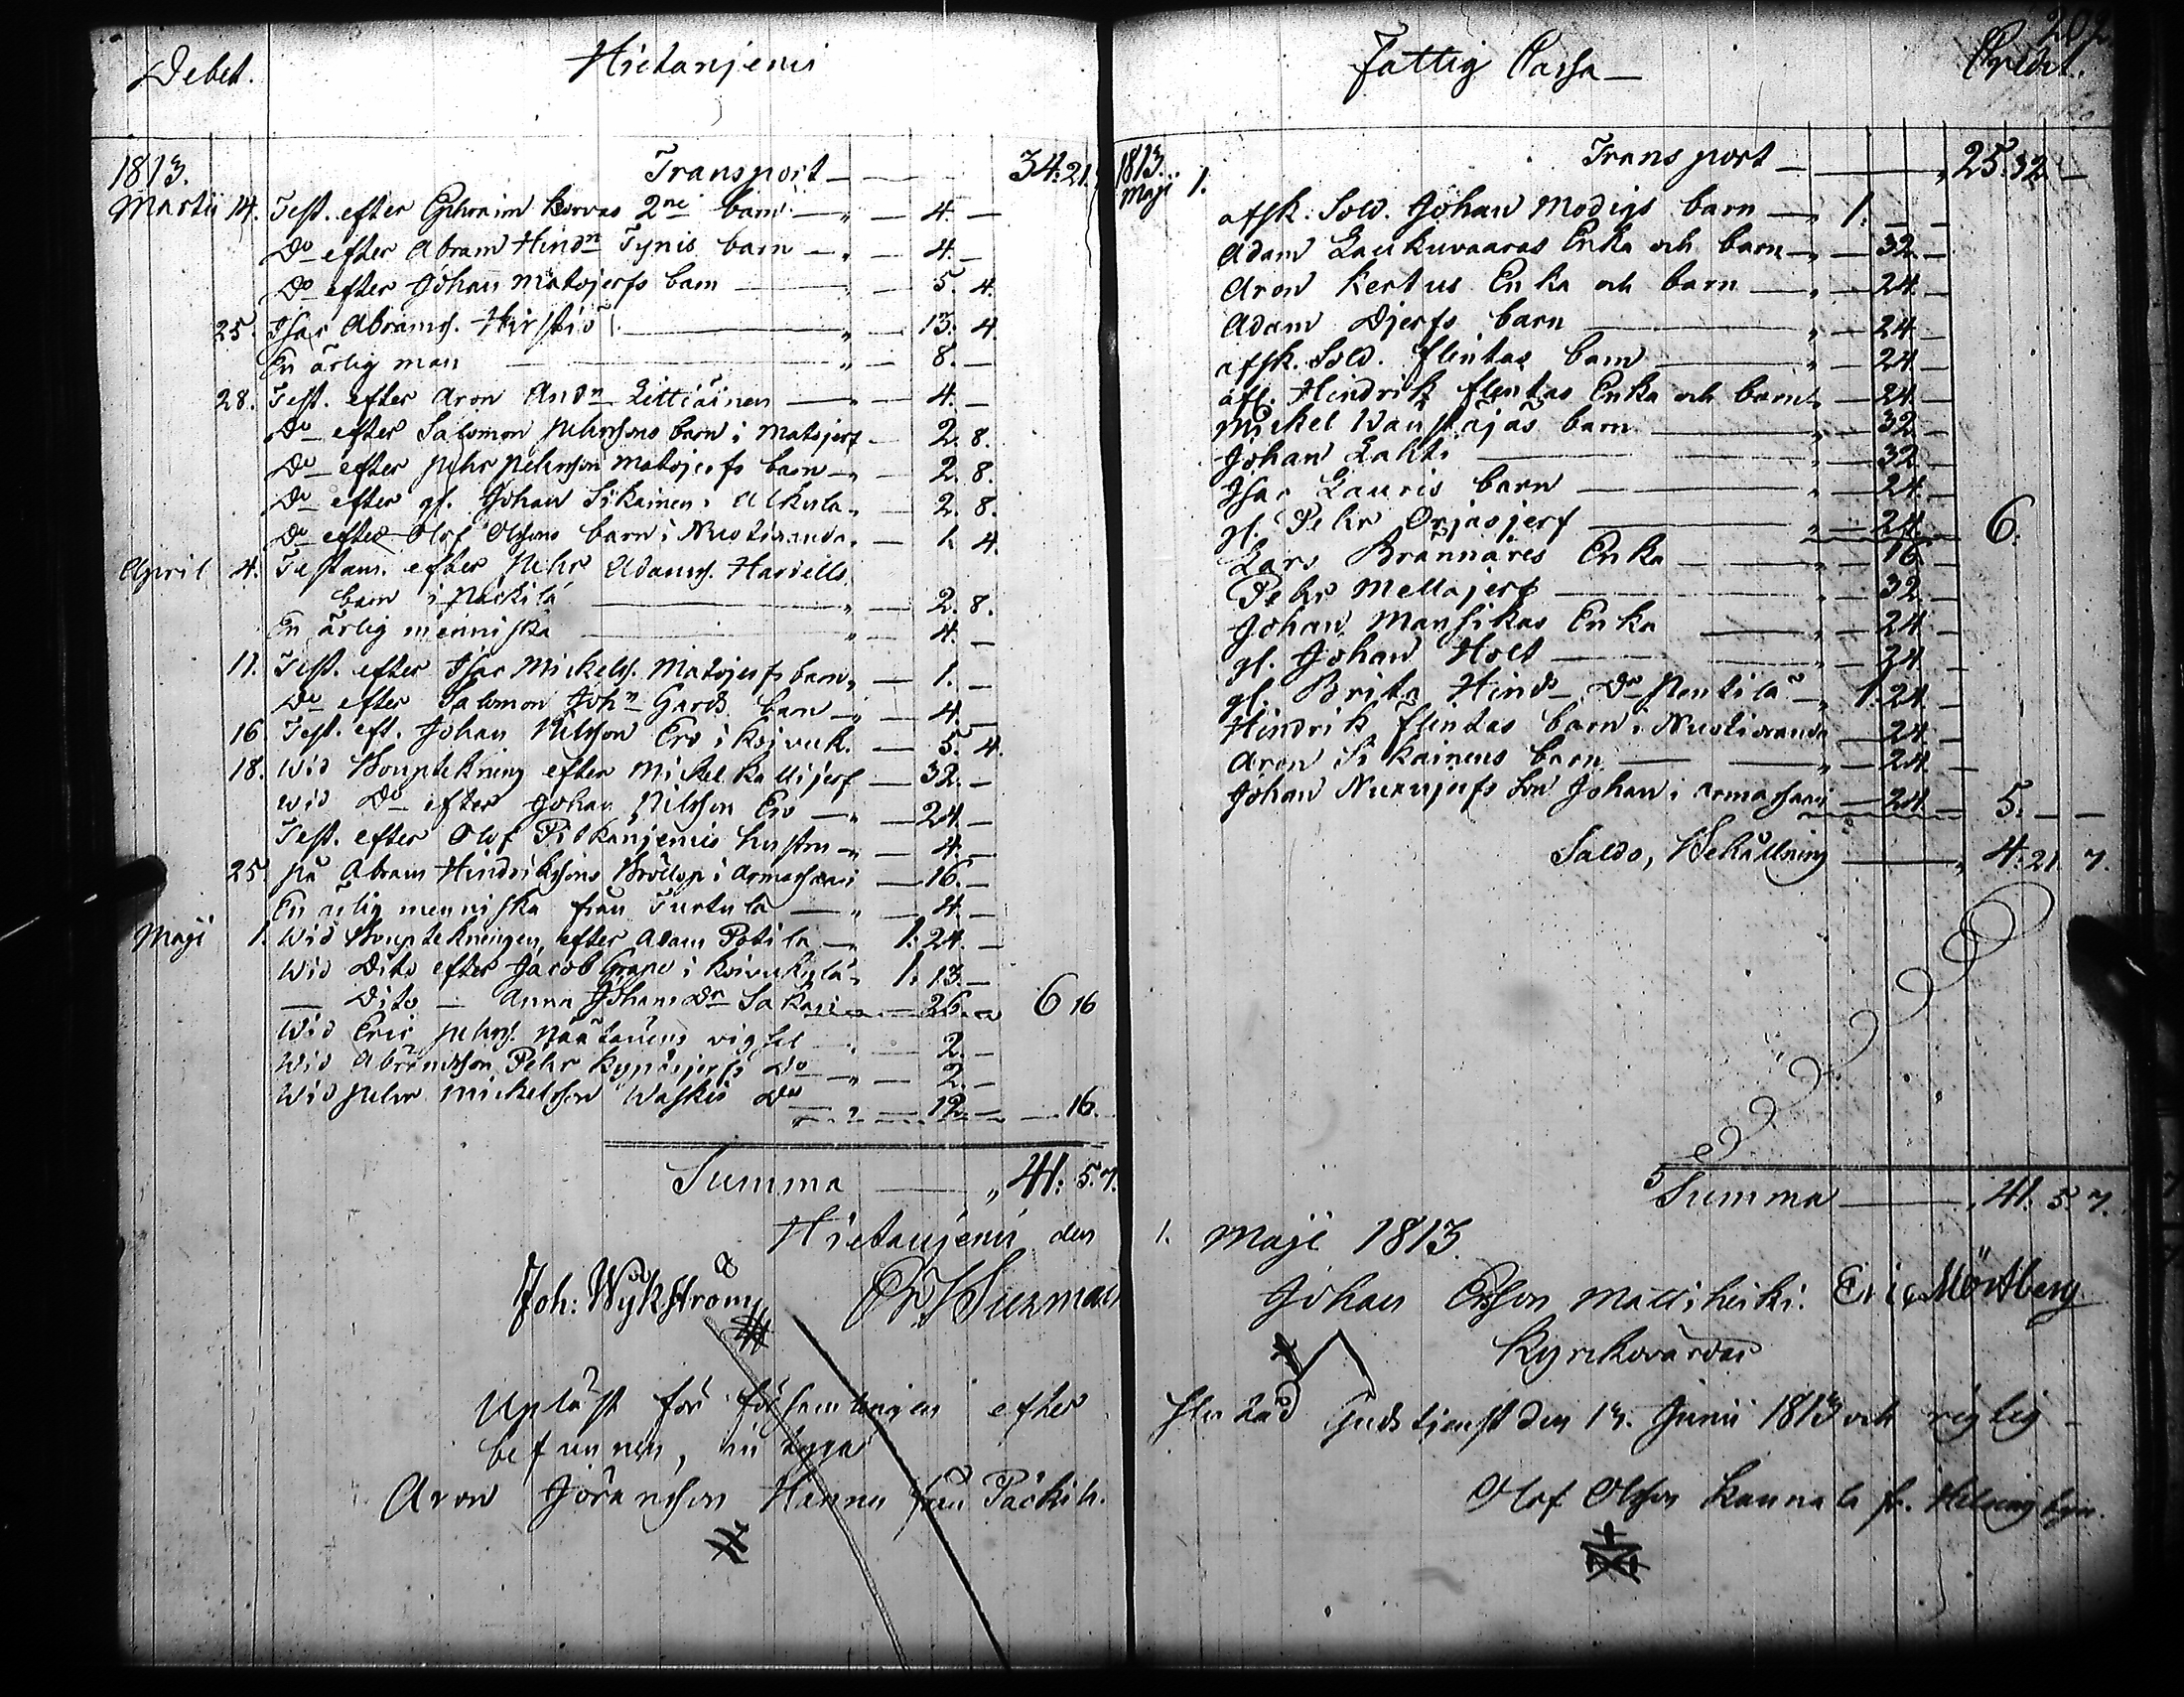 Debet.
Hietaniemi
1813.
Transport 34. 21.
Martii 14. Test. efter Ephraim Korvas 2ne barn 4. —
Do efter Abram Hindn Tynis barn 4. —
Do efter Johan Matojerfs barn 5. 4.
25. Isac Abramss. Hirstiö 13. 4.
En ärlig man 8. —
28. Test. efter Aron Andn Littiäinen 4. —
Do efter Salomon Pehrssons barn i Matojerf 2. 8.
Do efter Pehr Pehrsson Matojerfs barn 2. 8.
Do efter gl. Johan Sikainen i Alkula 2. 8.
Do efter Olof Olssons barn i Niustiranda 1. 4.
April 4. Testam. efter Pehr Adamss. Hardells
barn i Päckilä 2. 8.
En ärlig menniska 4. —
11. Test. efter Isac Mickelss. Matojerfs barn 1. —
Do efter Salomon John Gards barn 4. —
16. Test. eft. Johan Nilsson Ero i Koivuk. 5. 4.
18. Wid Bouptekning efter Mickel Kallijerf 32. —
Wid Do efter Johan Nilsson Ero 24. —
Test. efter Olof Pitkäniemis hustru 4. —
25. På Abram Hindrikssons Bröllop i Armassaari 16. —
En ärlig menniska från Turtula 4. —
Maji 1. Wid Bouptekningen efter Adam Potila 1. 24. —
Wid Dito efter Jacob Grape i Koivukylä 1. 13. —
— Dito — Anna Johansdr 26. — 6 16
Wid Eric Pehrss. vigsel 2. —
Wid Abramsson Pehr Do 2. —
Wid Pehr Mickelsson Waskis Do 12. — 16.
Summa 41. 5. 7.
Hietaniemi den
Joh: Wykström
Upläst för församlingen efter
befunnen,
Aron Göransson Hannu från Päckilä.
202
Fattig Cassa
Credit.
1813.
Transport 25. 32. —
Maji 1.
afsk. Sold. Johan Modigs barn 1. — —
Adam Laukuvaaras Enka och barn 32. —
Aron Kertus Enka och barn 24. —
Adam Djerfs barn 24. —
afsk. Sold. Flintas barn 24 —
afl. Hindrik Flintas Enka och barn 24. —
Mickel barn 32 —
Johan Lahti 32 —
Isac Lauris barn 24. —
gl. Pehr Orjasjerf 24. — 6.
Lars Brännäres Enka 16 —
Pehr Mellajerf 32. —
Johan Mansikas Enka 24 —
gl. Johan Holt 24. —
gl. Brita Hindr Dr Pentilä 1. 24. —
Hindrik Flintas barn i Niustiranda 24. —
Aron Sikainens barn 24. —
Johan son Johan i Armassaari 24 — 5. — —
Saldo, Behållning 4. 21. 7.
Summa 41. 5. 7.
1. Maji 1813.
Johan Ersson Eric Mörtberg
Kyrkovärdar
slutad Gudstjenst den 13. Junii 1813 och rigtig
Olof Olsson Kannala fr. Helsingbyn.